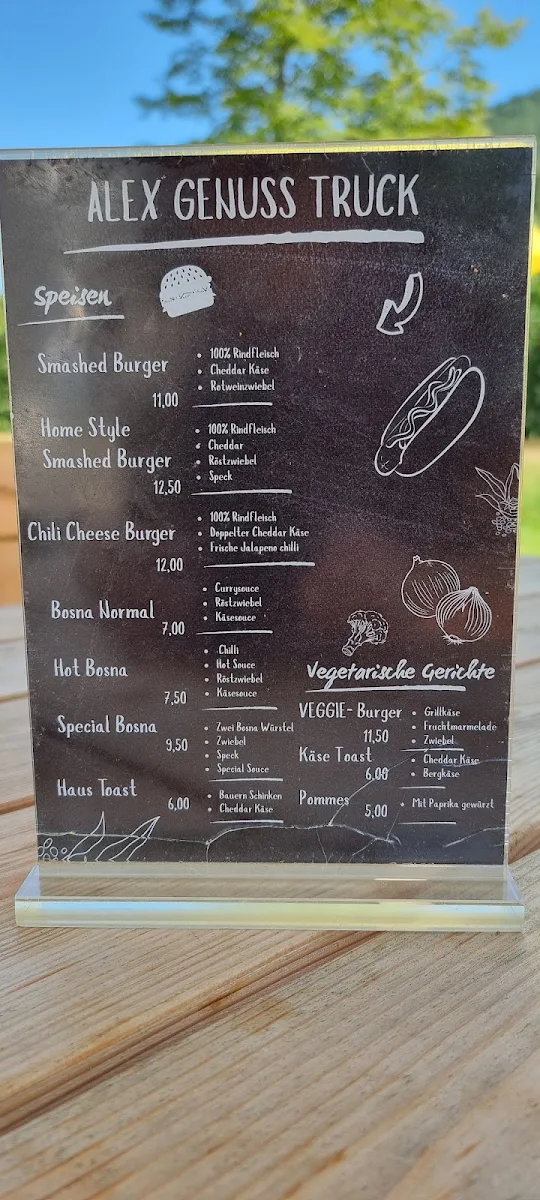 ALEX GENUSS TRUCK
Speisen
Smashed Burger
11,00
• 100% Rindfleisch
• Cheddar Käse
• Rotweinzwiebel
Home Style
Smashed Burger
12,50
• 100% Rindfleisch
• Cheddar
• Röstzwiebel
• Speck
Chili Cheese Burger
12,00
• 100% Rindfleisch
• Doppelter Cheddar Käse
• Frische Jalapeno chilli
Bosna Normal
7,00
• Currysouce
• Röstzwiebel
• Käsesouce
Hot Bosna
7,50
• Chilli
• Hot Souce
• Röstzwiebel
• Käsesouce
Special Bosna
9,50
• Zwei Bosna Würstel
• Zwiebel
• Speck
• Special Souce
Haus Toast
6,00
• Bauern Schinken
• Cheddar Käse
Vegetarische Gerichte
VEGGIE- Burger
11,50
• Grillkäse
• Fruchtmarmelade
• Zwiebel
Käse Toast
6,00
• Cheddar Käse
• Bergkäse
Pommes
5,00
• Mit Paprika gewürzt